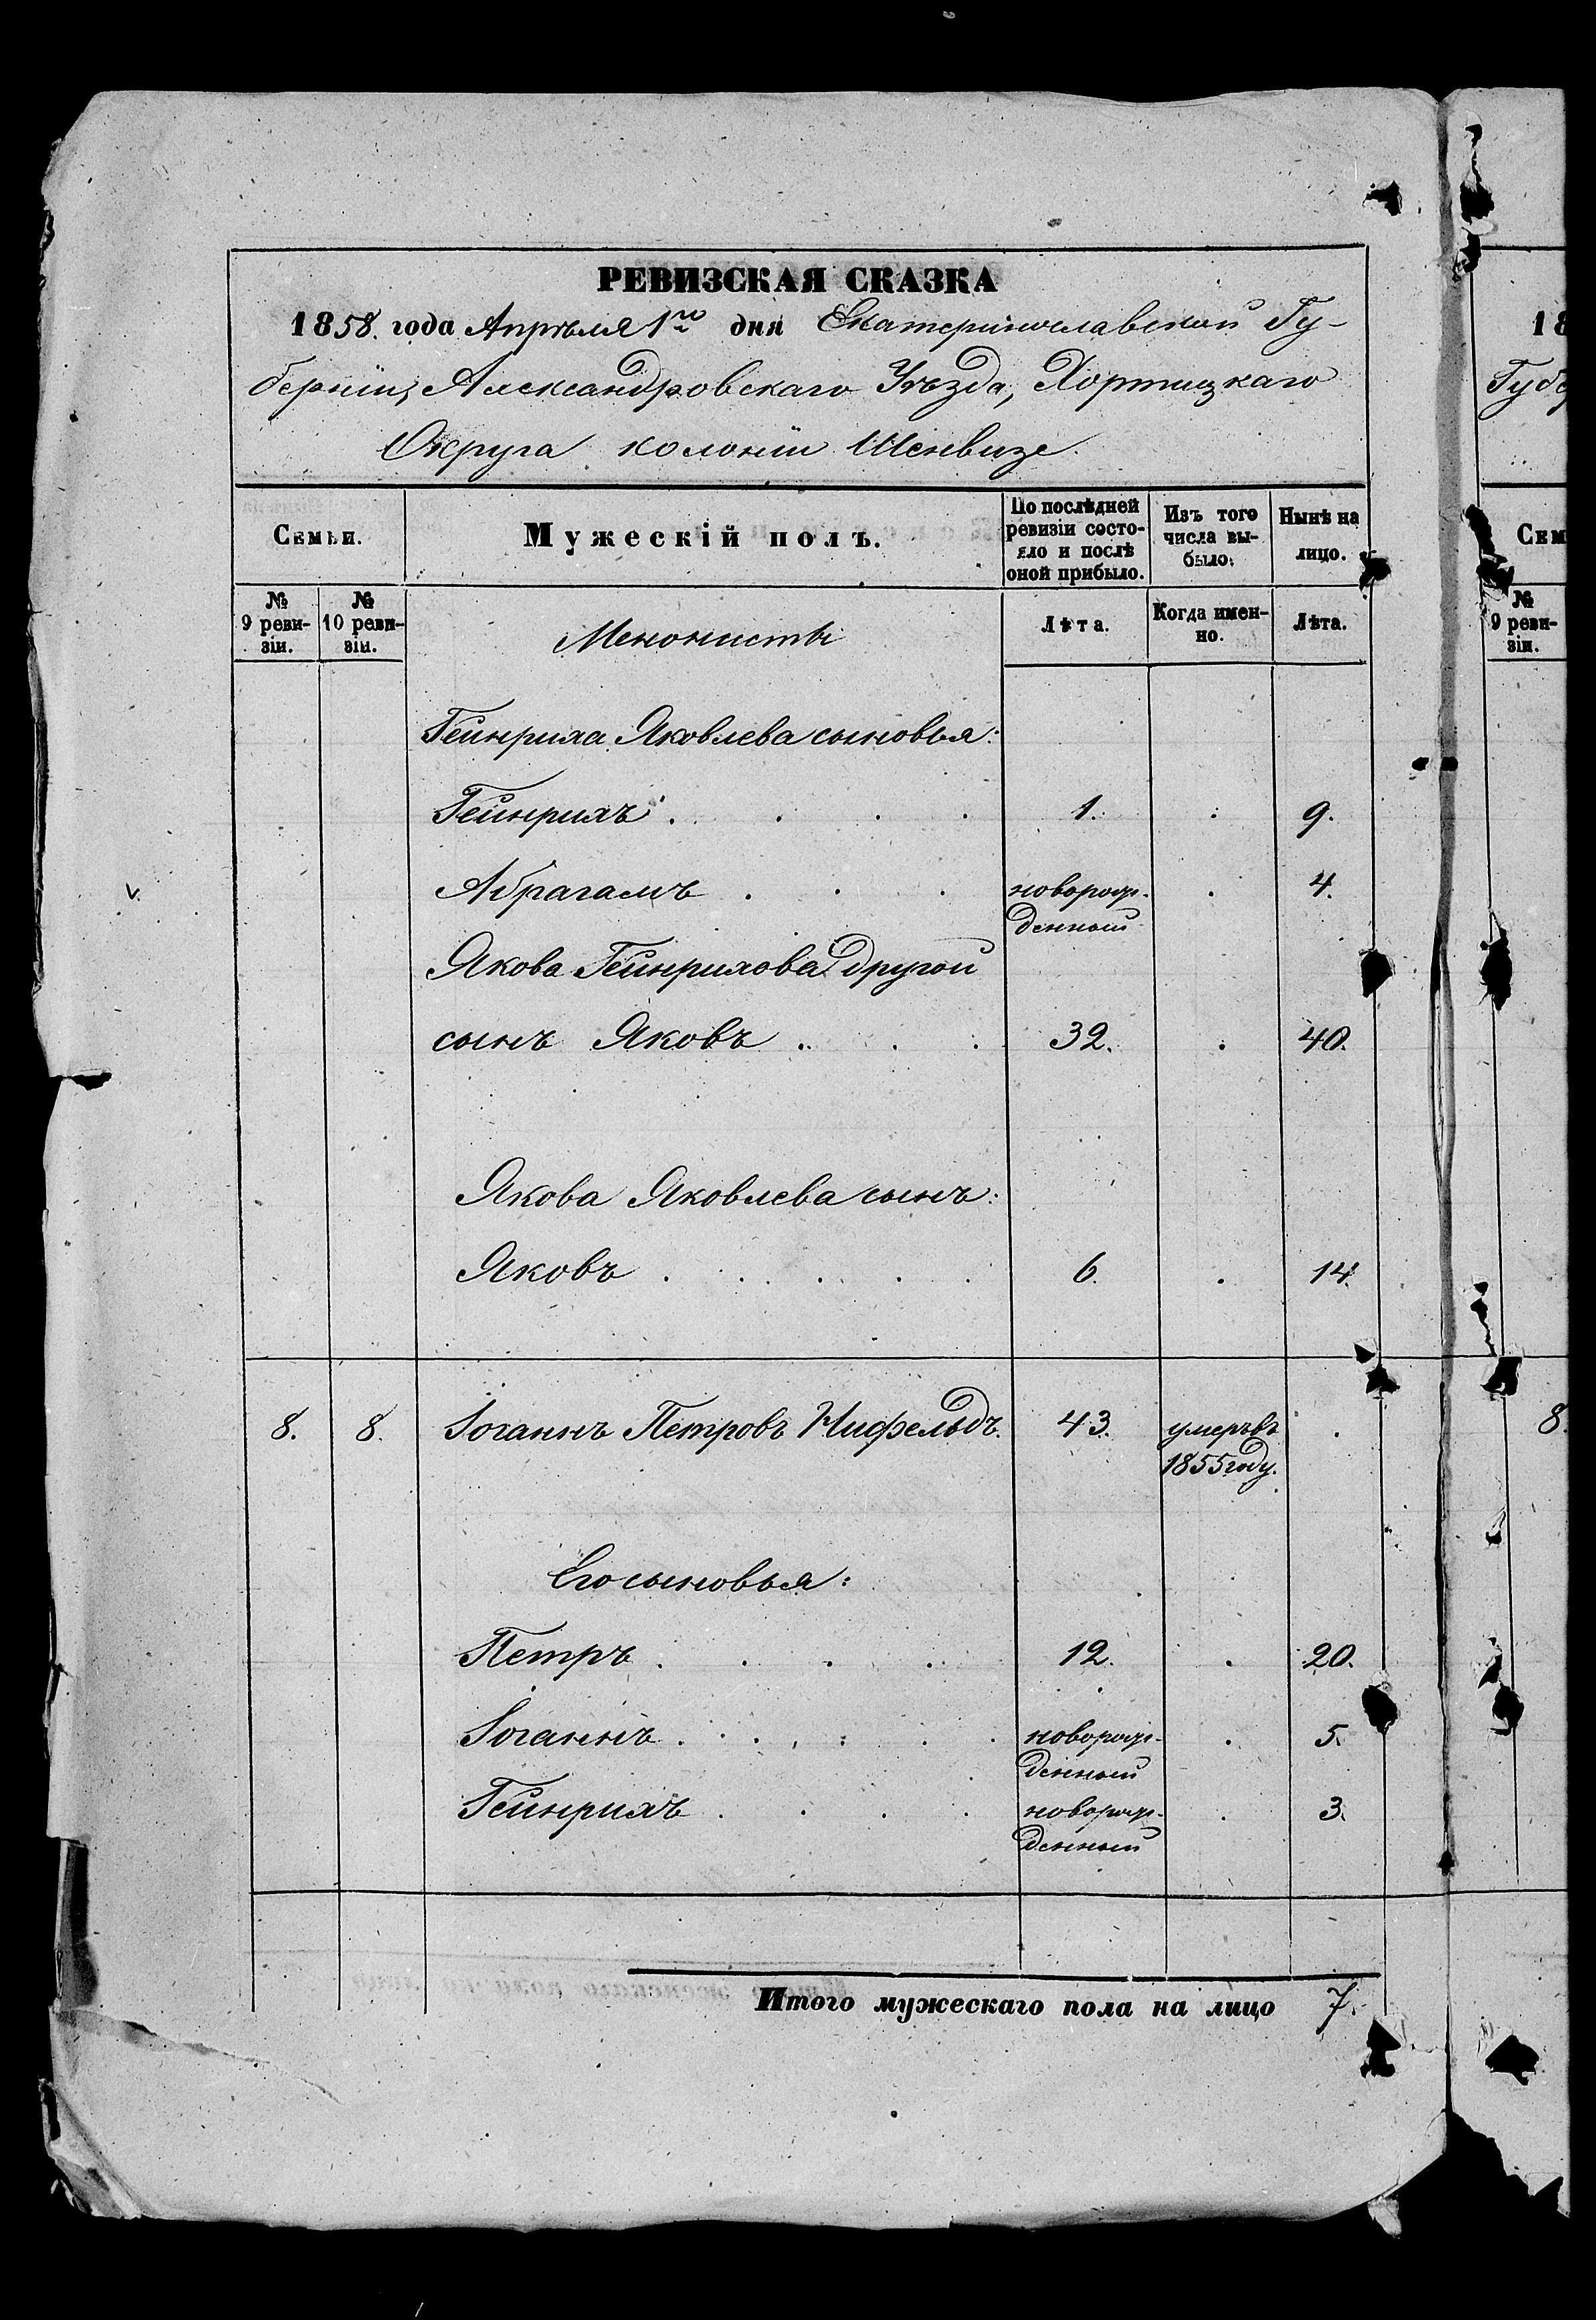 РЕВИЗСКАЯ СКАЗКА
1858. года Апрѣля 1го дня Екатеринославской Гу-
берніи, Александровскаго Уѣзда, Хортицкаго
Округа колоніи Шенвизе.
Семьи.
Мужескій полъ.
По послѣдней
ревизіи состо-
яло и послѣ
оной прибыло.
Изъ того
числа вы-
было.
Нынѣ на
лицо.
№
9 реви-
зіи.
№
10 реви-
зіи.
Менонисты
Лѣта.
Когда имен-
но.
Лѣта.
Гейнриха Яковлева сыновья:
Гейнрихъ . . . . 1. . 9.
Абрагамъ . . . новорож- . 4.
денный
Якова Гейнрихова другой
сынъ Яковъ . . . 32. . 40.
Якова Яковлева сынъ:
Яковъ . . . . . 6. . 14.
8. 8. Іоганнъ Петровъ Нифельдъ. 43. умеръ въ .
1855 году.
Его сыновья:
Петръ . . . . 12. . 20.
Іоганнъ . . . . . новорож- . 5.
денный
Гейнрихъ . . . . новорож- . 3.
денный
Итого мужескаго пола на лицо 7.
18
Губе
Сем
№
9 реви-
зіи.
8.